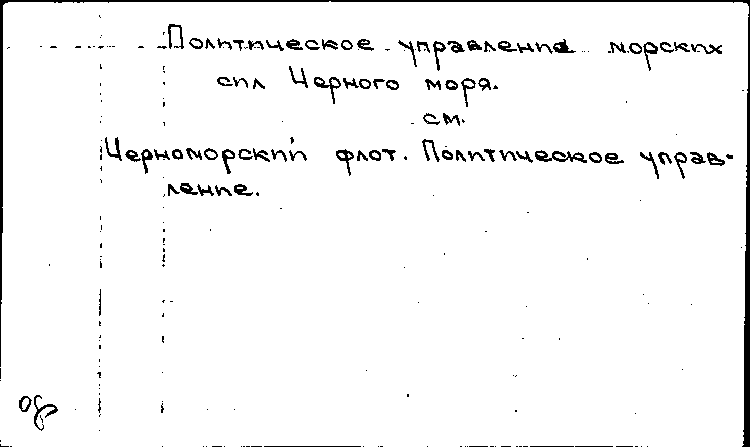 Политическое управление морских
сил Черного моря.
см.
Черноморский флот. Политическое управ-
ление.